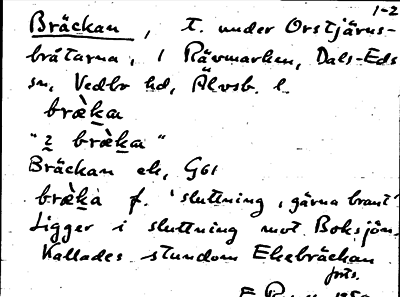 1-2
Bräckan, t. under Orstjärns-
bråtarna, i Rävmarken, Dals-Eds
sn, Vedbo hd, Älvsb. l.
bræ̀ka
"i bræ̀ka"
Bräckan ek, G61
bræ̀ka f. 'sluttning, gärna brant'
Ligger i sluttning mot Boksjön.
Kallades stundom Ekebräckan
forts.